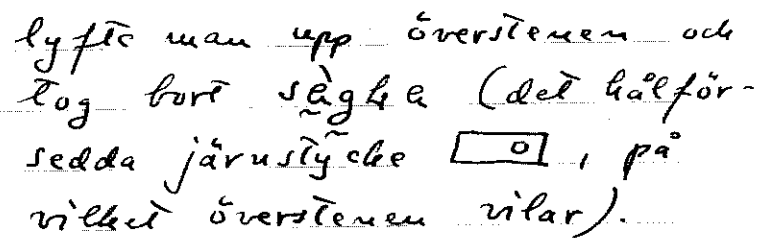 lyfte man upp överstenen och
tog bort sègha (det hålför-
sedda järnstycke , på
vilket överstenen vilar).